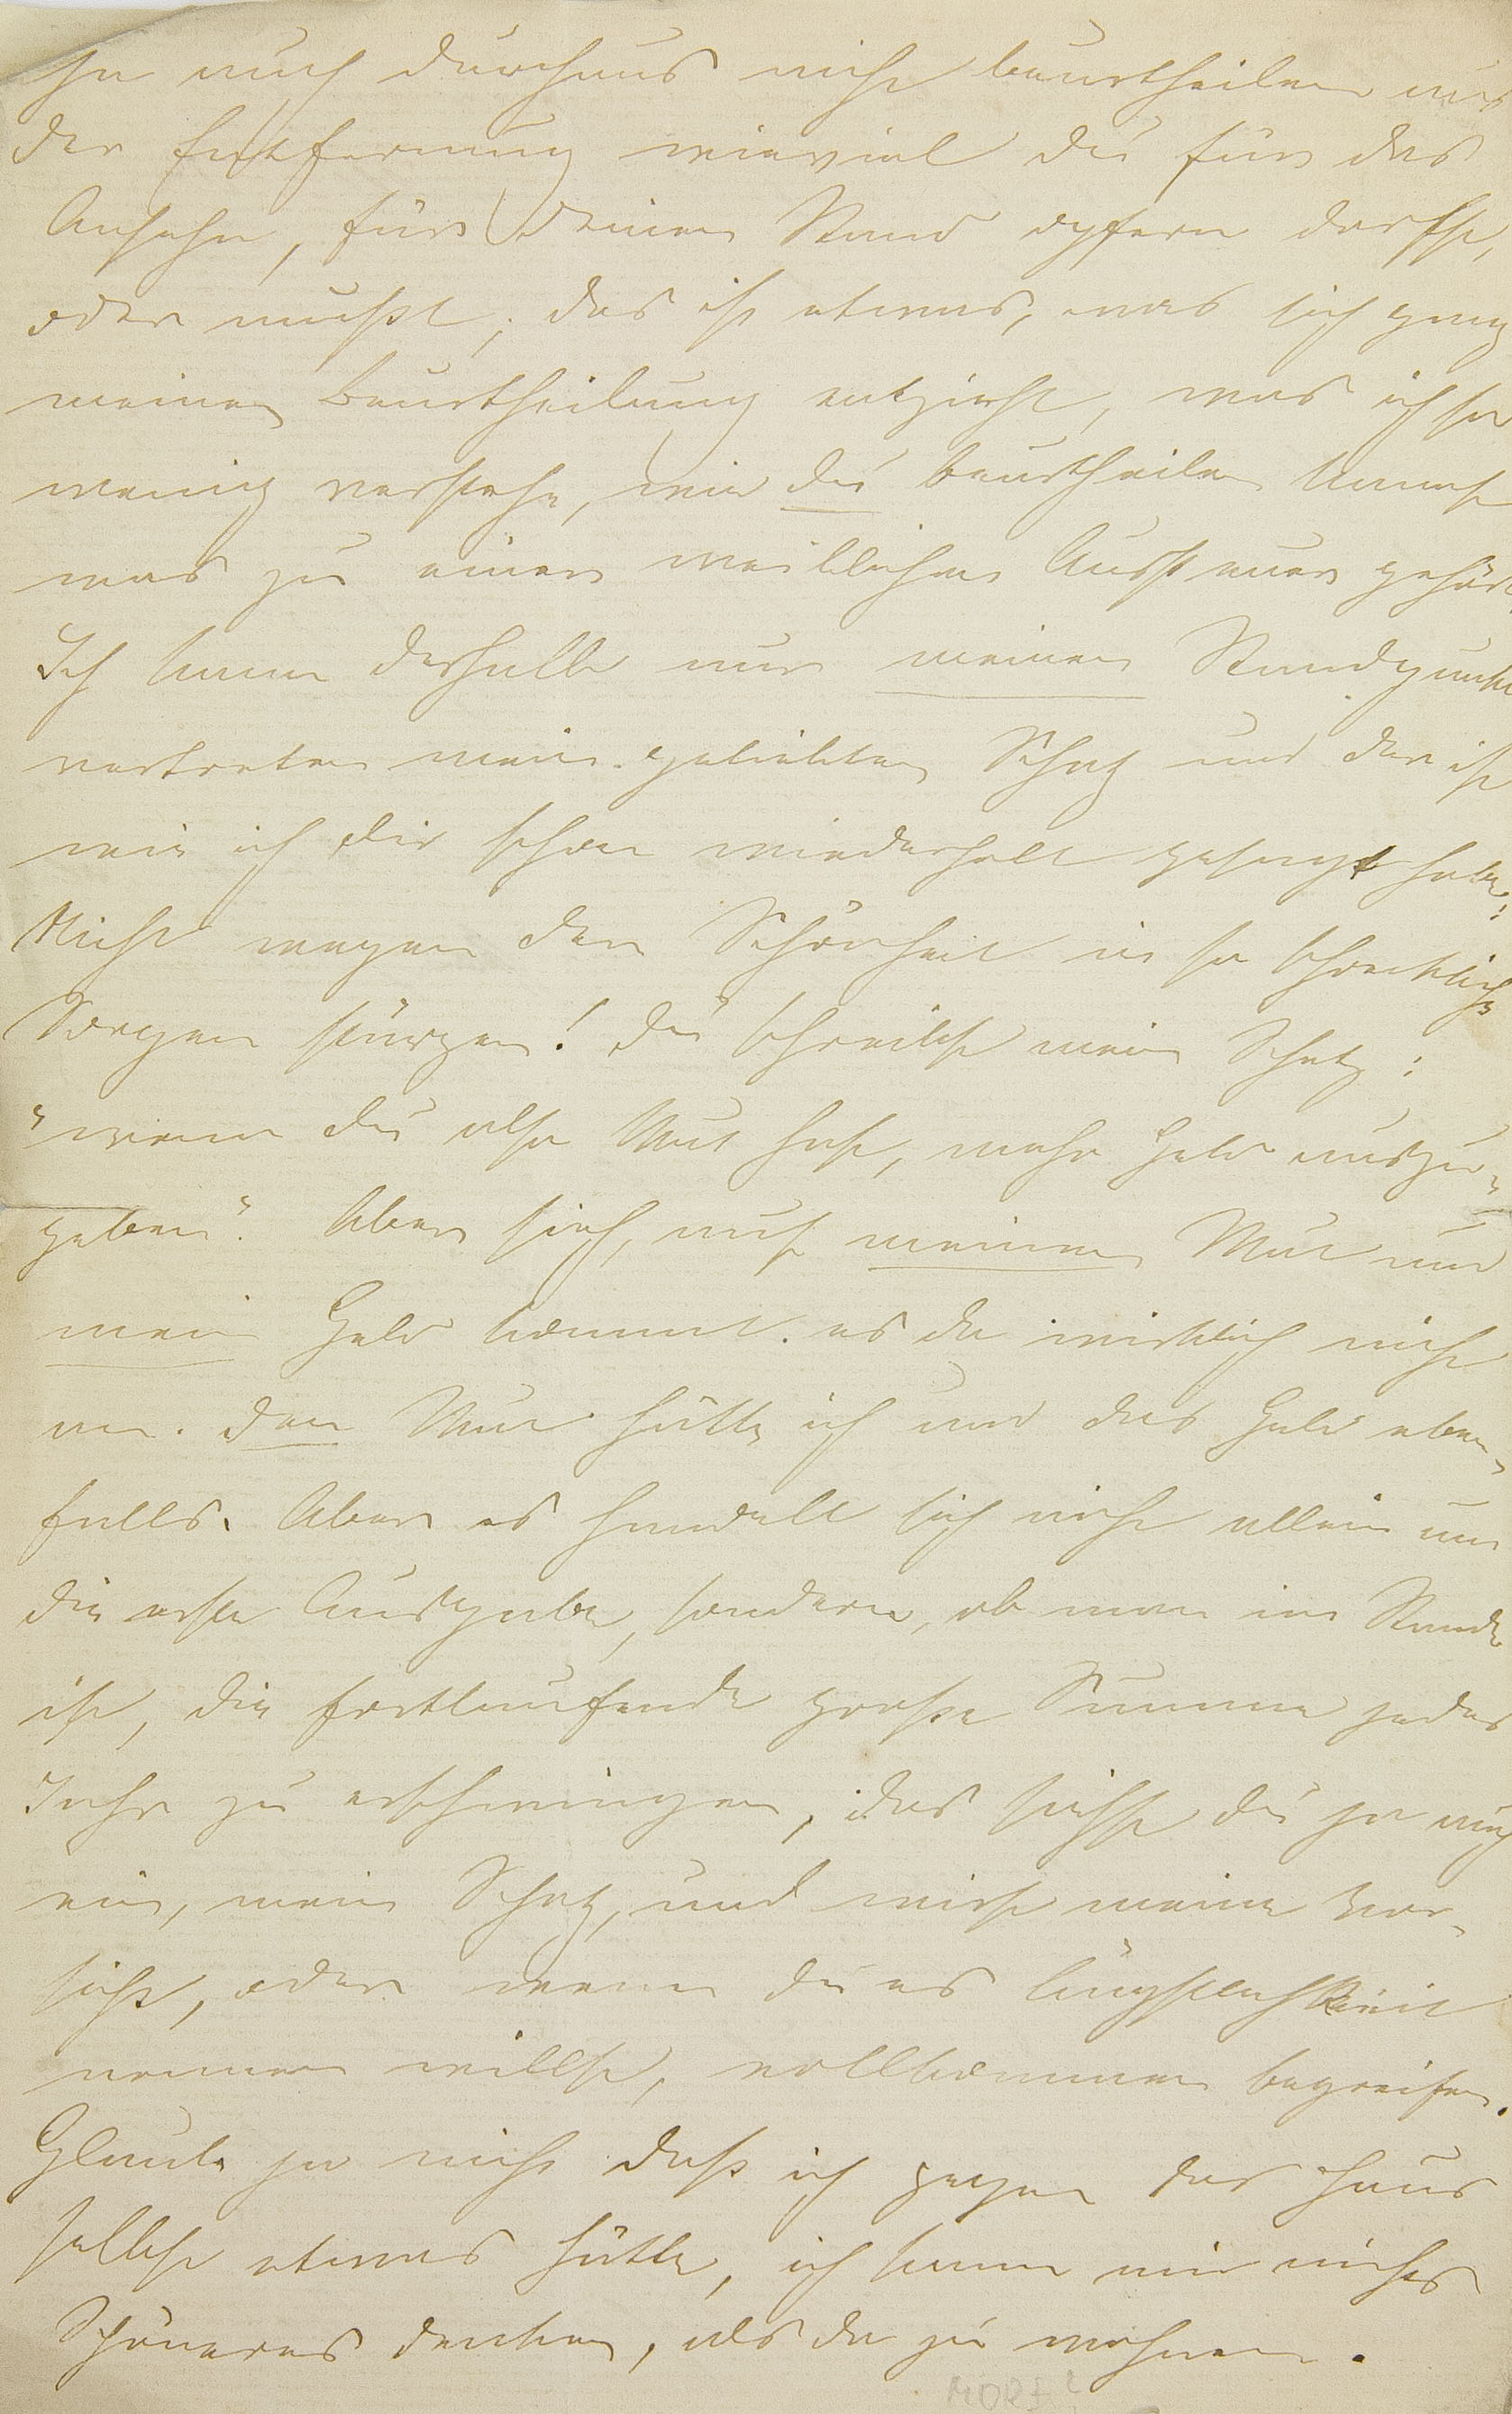 ja auch durchaus nicht beurtheilen aus
der Entfernung wieviel du für das
Ansehn, für deinen Stand opfern darfst,
oder mußt; das ist etwas, was sich ganz
meiner Beurtheilung entzieht, was ich so
wenig verstehe, wie du beurtheilen kannst
was zu einer weiblichen Aussteuer gehört.
Ich kann deshalb nur meinen Standpunkt
vertreten mein geliebter Schatz und der ist
wie ich dir schon wiederholt gesagt habe:
Nicht wegen der Schönheit in so schreckliche
Sorgen stürzen! Du schreibst mein Schatz:
"wenn du also Mut hast, mehr Geld auszu-
geben". Aber sieh, auf meinen Mut und
mein Geld kommt es da wirklich nicht
an. Den Mut hätte ich und das Geld eben-
falls. Aber es handelt sich nicht allein um
die erste Ausgabe, sondern, ob man im Stande
ist, die fortlaufende große Summe jedes
Jahr zu erschwingen, das siehst du ja auch
ein, mein Schatz, und wirst meine Vor-
sicht, oder wenn du es Ängstlichkeit
nennen willst, vollkommen begreifen.
Glaube ja nicht daß ich gegen das Haus
selbst etwas hätte, ich kann mir nichts
Schöneres denken, als da zu wohnen.